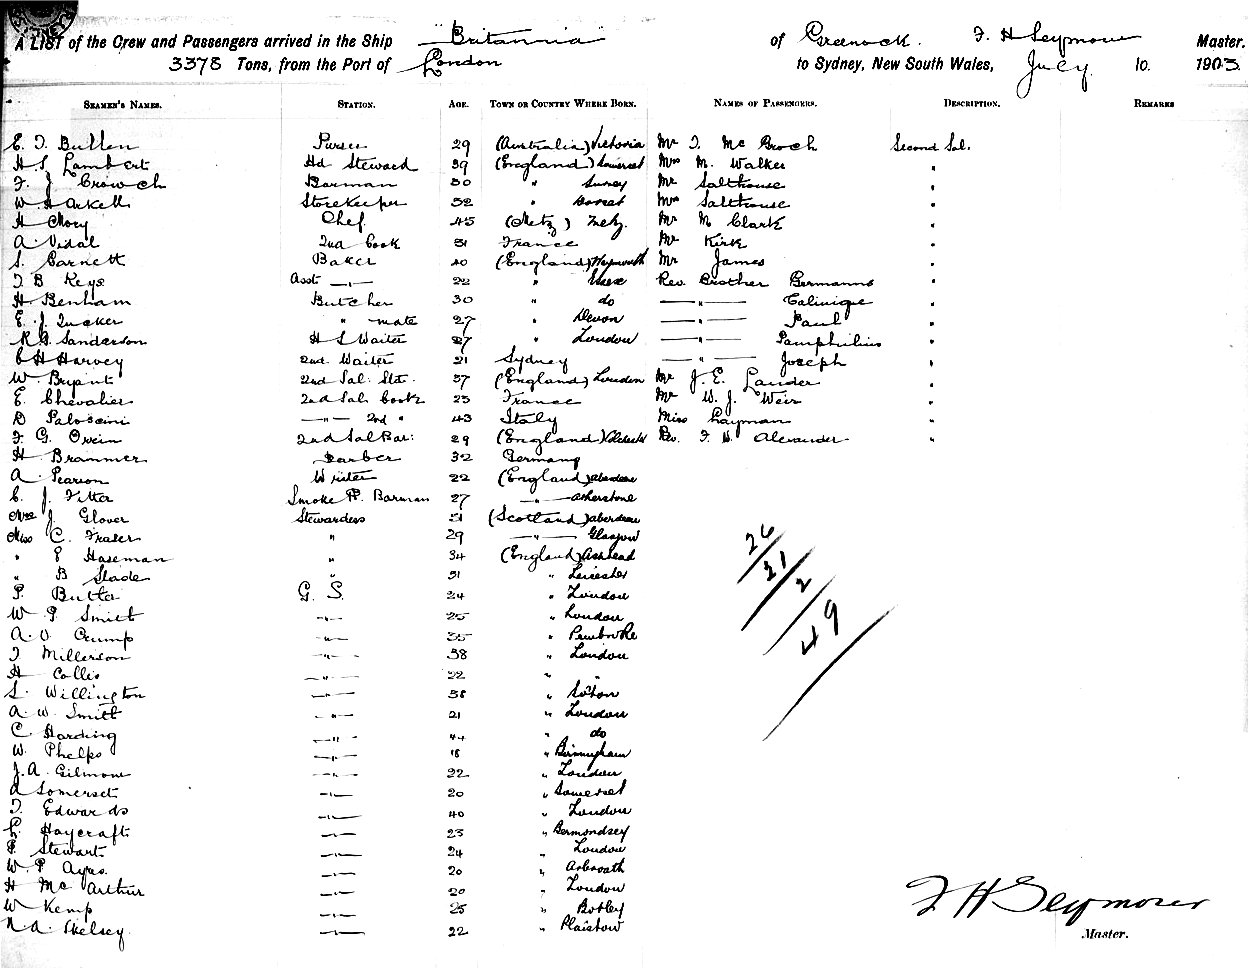 A LIST of the Crew and Passengers arrived in the Ship "Britannia" of Greenock. F. H Seymour Master.
3378 Tons, from the Port of London to Sydney, New South Wales, July 10. 1903.
SEAMEN'S NAMES. STATION. AGE. TOWN OR COUNTRY WHERE BORN. NAMES OF PASSENGERS. DESCRIPTION. REMARKS
E. T. Bullen Purser 29 (Australia) Victoria Mr T. Mc Broch Second Sal.
H S Lambert Hd Steward 39 (England) Somerset Mrs M. Walker "
F. J Crowch Barman 30 " Surrey Mr Salthouse "
W H Arkell Storekeeper 32 " Dorset Mrs Salthouse "
H Mory Chef 45 (Metz) Metz. Mr M Clark "
A. Vidal 2nd Cook 31 France Mr Kirk "
S. Garnett Baker 40 (England) Weymouth Mr James "
T B Keys Asst —"— 22 " Essex Rev. Brother Germanns "
H Benham Butcher 30 " do —"— Calinique "
E. J. Tucker " mate 27 " Devon —"— Paul "
R. G. Sanderson H S Waiter 27 " London —"— Pamphilius "
C H Harvey 2nd. Waiter 21 Sydney —"— Joseph "
W. Bryant 2nd Sal. Std. 37 (England) London Mr J. E. Lander "
E. Chevalier 2nd Sal. Cook 25 France Mr W. J. Weir "
D Paloscini —"— 2nd " 43 Italy Miss Layman "
F. G. Owein 2nd Sal Bar: 29 (England) Colchester Rev. F. H. Alexander "
H Brammer Barber 32 Germany
A. Pearson Writer 22 (England)
C. J. Fitter Smoke R. Barman 27 —"— Atherstone
Mrs J Glover Stewardess 51 (Scotland) Aberdeen
Miss C. Fraser " 29 —"— Glasgow
" E Haseman " 34 (England) Ashtead
" B Slade " 31 " Leicester
P. Butler G. S. 24 " London
W P. Smith —"— 25 " London
A. O. Crump —"— 35 " Pembroke
T Millerson —"— 38 " London
H Collis —"— 22 " "
S. Willington —"— 38 " Soton
A. W. Smith —"— 21 " London
C Harding —"— 44 " do
W. Phelps —"— 18 " Birmingham
J. A. Gilmour —"— 22 " London
A Somerset —"— 20 " Somerset
T. Edwards —"— 40 " London
L. Haycraft —"— 23 " Bermondsey
P. Stewart —"— 24 " London
W. P. Ayres. —"— 20 " Arbroath
H Mc Arthur —"— 20 " London
W Kemp —"— 25 " Botley
N. A. Skelsey —"— 22 " Plaistow
26
21
2
49
F H Seymour
Master.